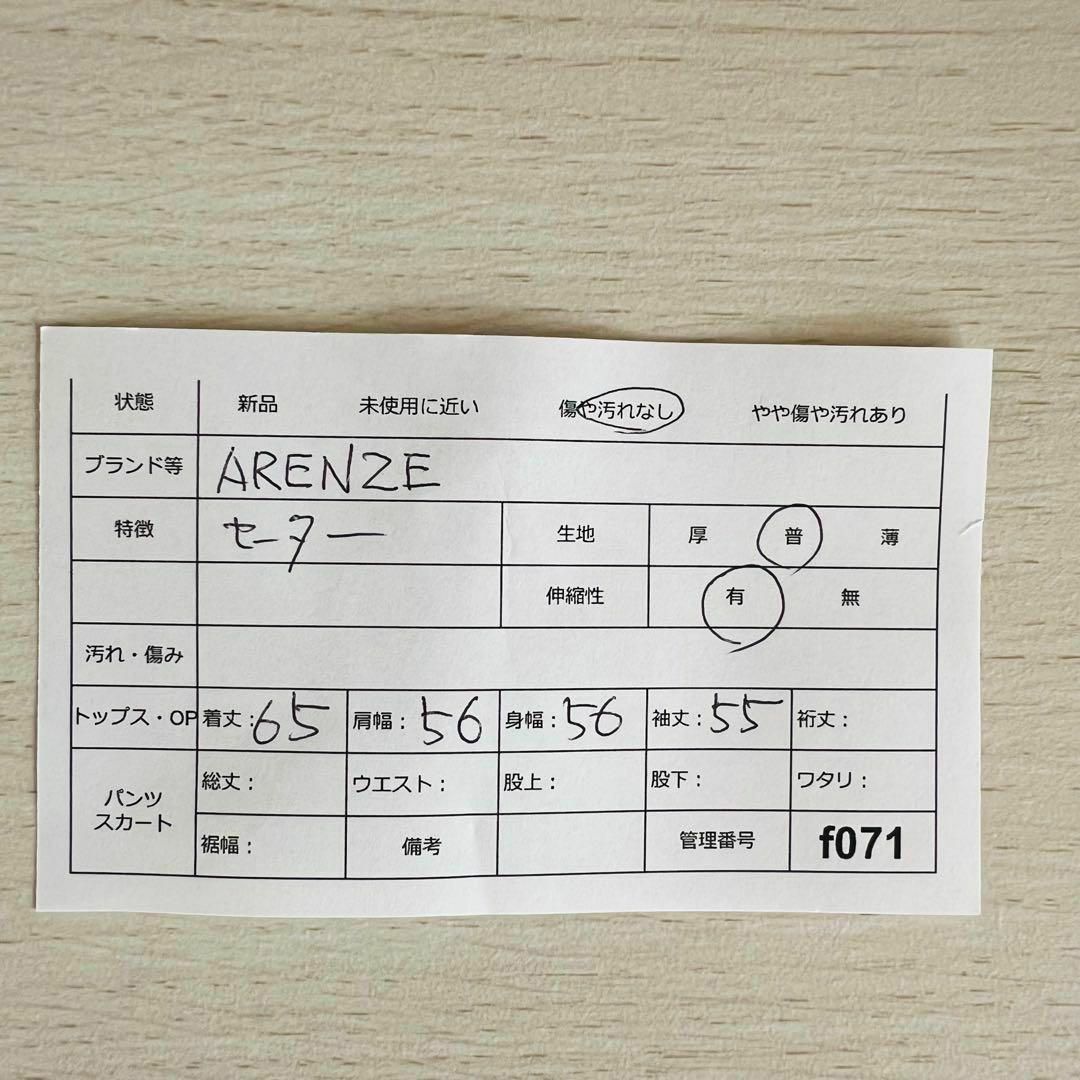 状態 新品 未使用に近い 傷や汚れなし やや傷や汚れあり
ブランド等 ARENZE
特徴 セーター 生地 厚 普 薄
伸縮性 有 無
汚れ・傷み
トップス・OP 着丈：65 肩幅：56 身幅：56 袖丈：55 裄丈：
パンツ
スカート
総丈： ウエスト： 股上： 股下： ワタリ：
裾幅： 備考 管理番号 f071